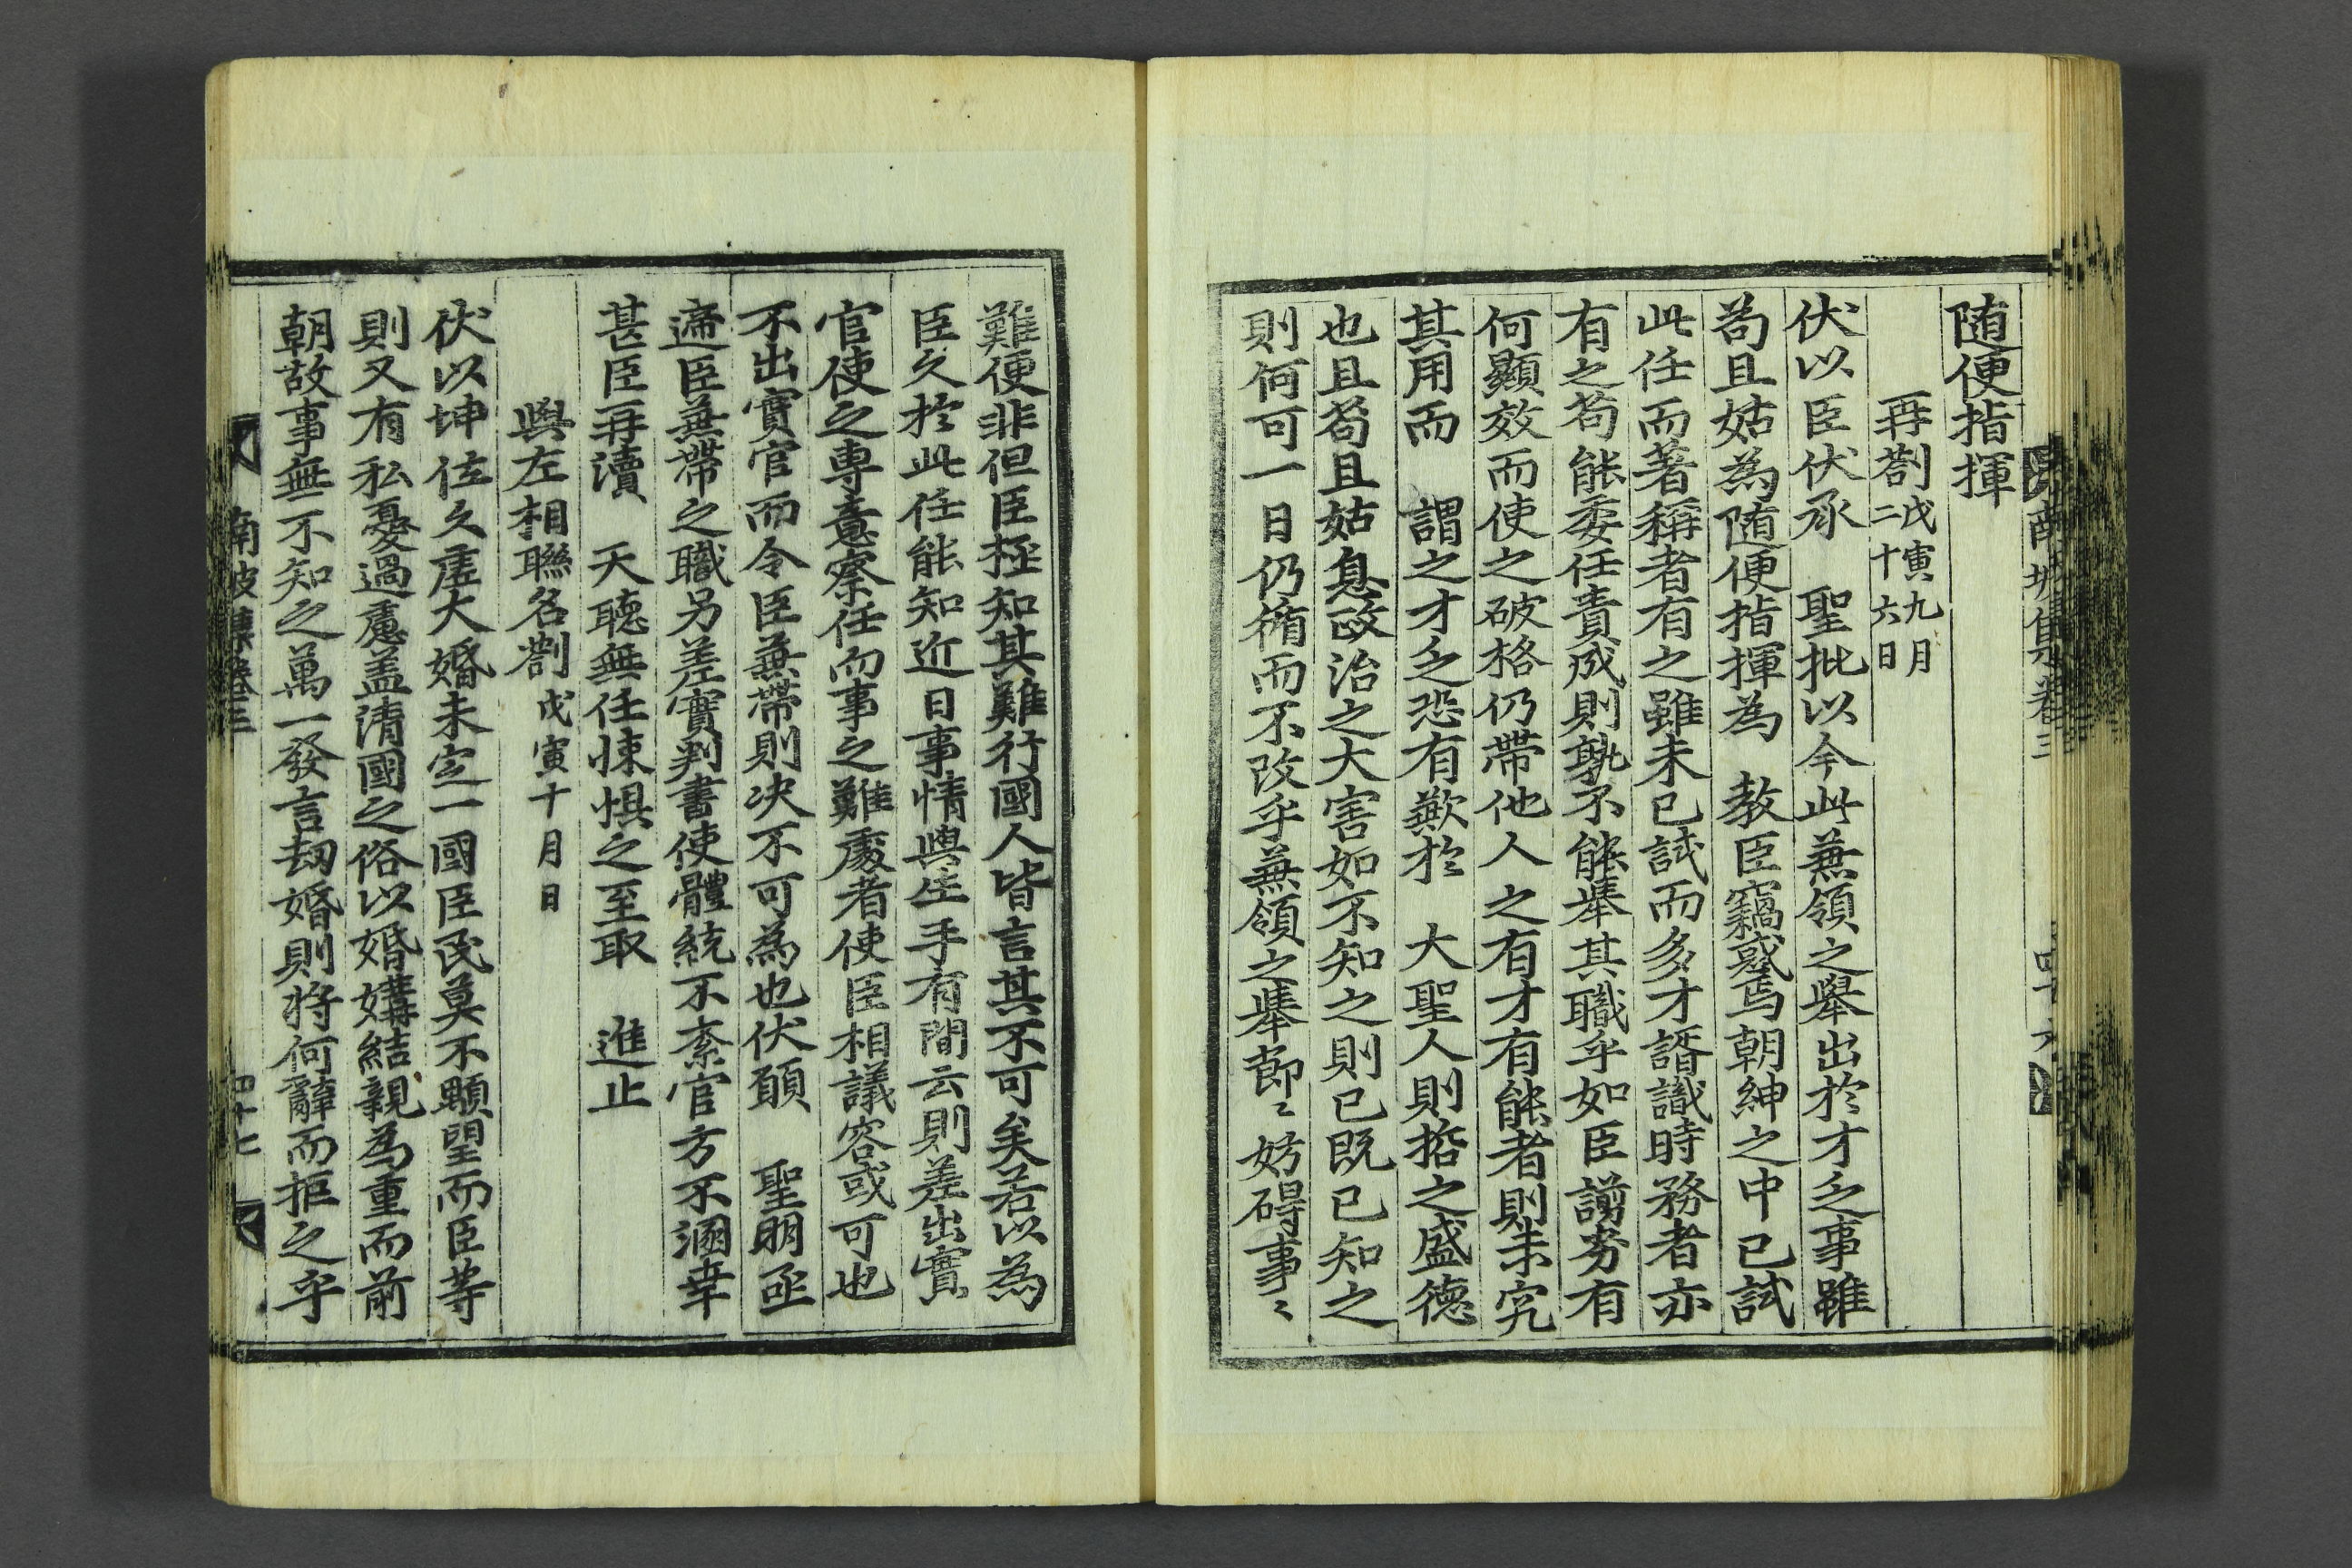 随便指揮
再劄戊寅九月
二十六日
伏以臣伏承　聖批以今此兼領之舉出於才乏事雖
苟且姑為随便指揮為　教臣竊惑焉朝紳之中已試
此任而著稱者有之雖未已試而多才諝識時務者亦
有之苟能委任責成則孰不能舉其職乎如臣謭劣有
何顯效而使之破格仍帶他人之有才有能者則未究
其用而　謂之才乏恐有歉於　大聖人則哲之盛德
也且苟且姑息政治之大害如不知之則已既已知之
則何可一日仍循而不改乎兼領之舉節〻妨碍事〻
難便非但臣極知其難行國人皆言其不可矣若以為
臣久於此任能知近日事情與生手有間云則差出實
官使之專意察任而事之難處者使臣相議容或可也
不出實官而令臣兼帶則決不可為也伏願　聖明亟
遞臣兼帶之職另差實判書使體統不紊官方不溷幸
甚臣再瀆　天聽無任悚惧之至取　進止
與左相聯名劄戊寅十月日
伏以坤位久虛大婚未定一國臣民莫不顒望而臣等
則又有私憂過慮盖清國之俗以婚媾結親為重而前
朝故事無不知之萬一發言刼婚則將何辭而拒之乎
南坡集卷三
四十七